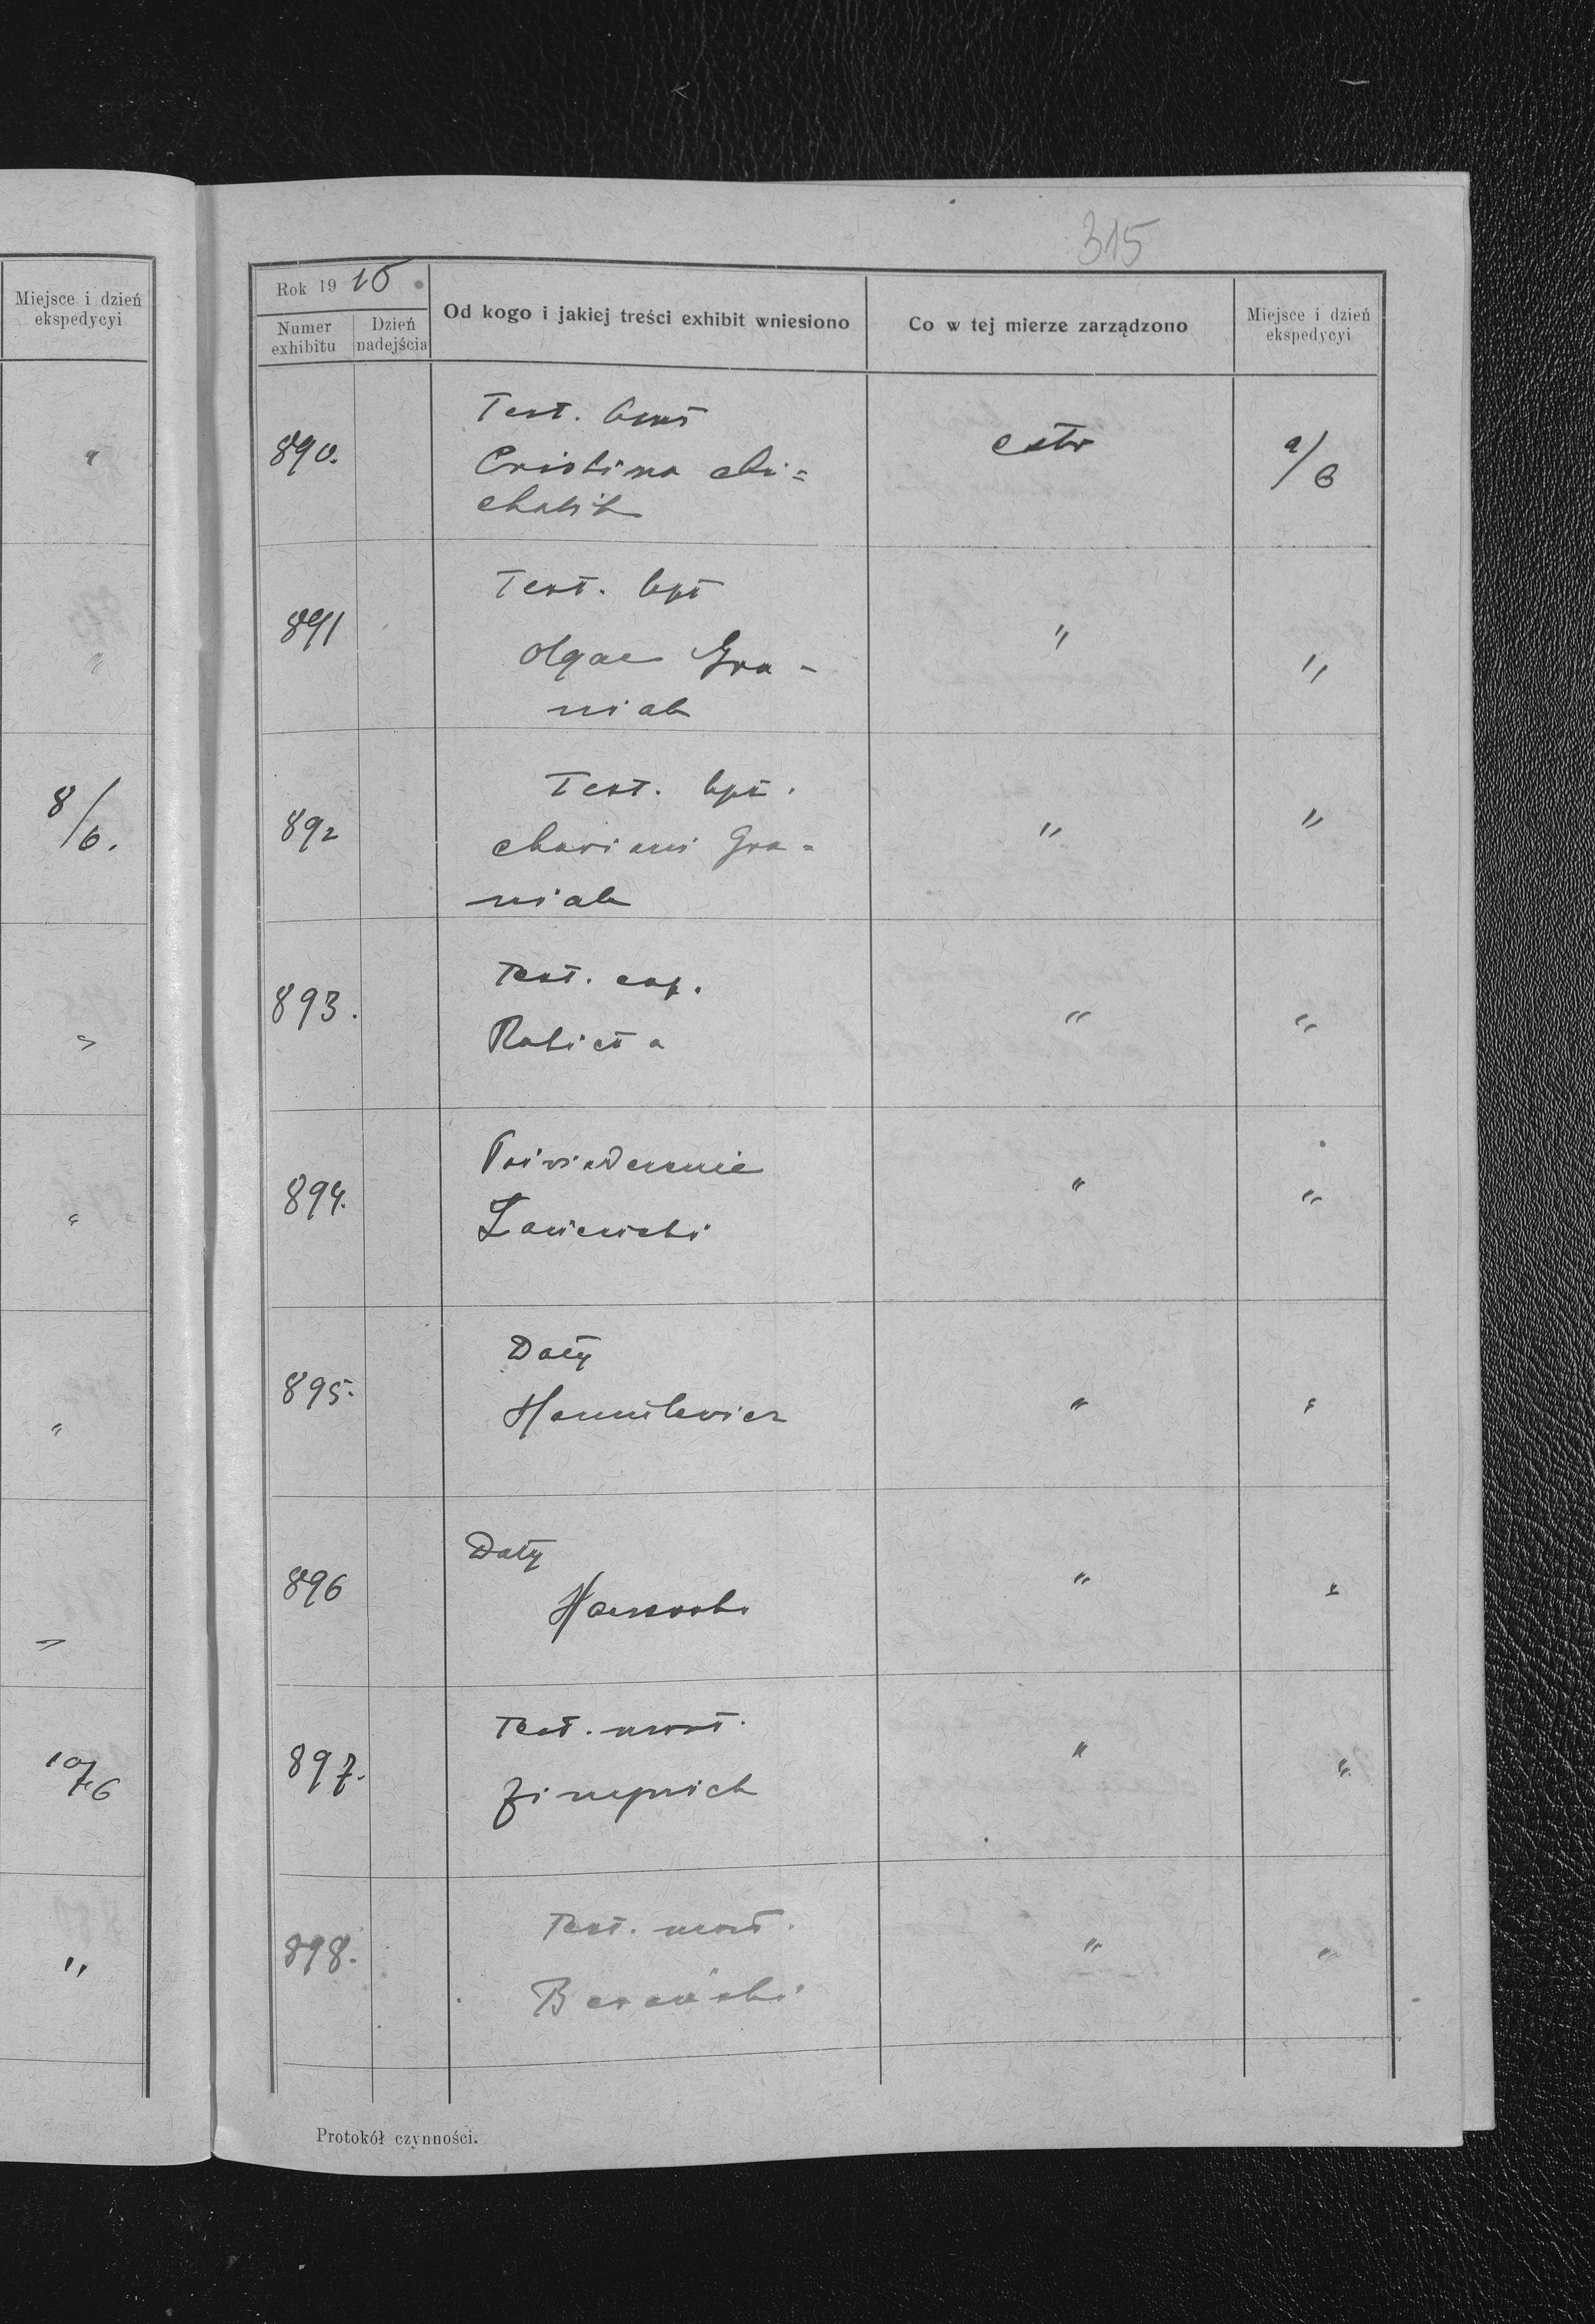 Miejsce i dzień
ekspedycyi
"
"
8/6.
"
"
"
"
10/6
"
315
Rok 19 15
Numer
exhibitu
Dzień
nadejścia
Od kogo i jakiej treści exhibit wniesiono
Co w tej mierze zarządzono
Miejsce i dzień
ekspedycyi
890.
Test.
Cristina
extr
9/6
891
Test. bpt
Olgae Gra-
niak
"
"
892
Test. bpt.
Mariani Gra-
niak
"
"
893.
Test. cop.
"
"
894.
Poświadczenie
"
"
895.
Daty
"
"
896
Daty
"
"
897.
Test. mort.
"
"
898.
Test. mort.
"
"
Protokół czynności.